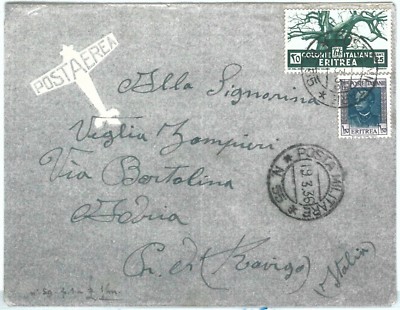 POSTA AEREA
10 COLONIE ITALIANE 25
ERITREA
ERITREA
Alla Signorina
Veglia Zampieri
Via Bortolina
Adria
Pr. di (Rovigo)
(Italia)
POSTA MILITARE
19.3.36
N. 35